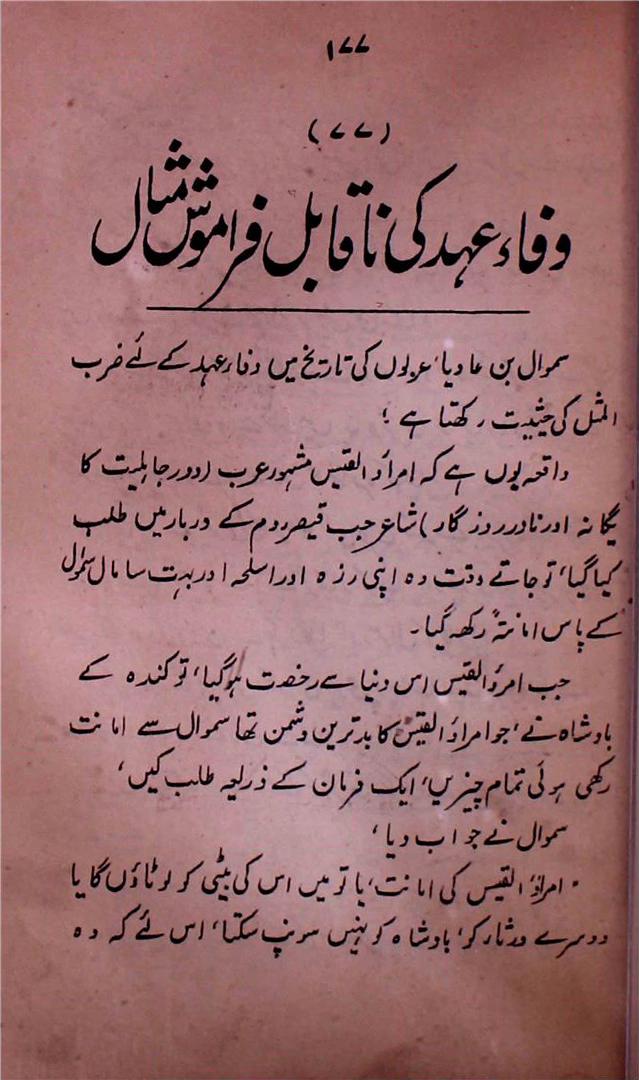 ۱۷۷
(۷۷)
وفاء عہد کی ناقابل فراموش مثال
سموال بن عادیا، عربوں کی تاریخ میں وفاء عہد کے لئے ضرب
المثل کی حیثیت رکھتا ہے ؛
واقعہ یوں ہے کہ امراؤ القیس مشہور عرب (دور جاہلیت کا
یگانہ اور نادر روزگار) شاعر جب قیصر روم کے دربار میں طلب
کیا گیا، تو جاتے وقت وہ اپنی زرہ اور اسلحہ اور بہت سا مال سموال
کے پاس امانتہً رکھ گیا۔
جب امرؤ القیس اس دنیا سے رخصت ہو گیا، تو کندہ کے
بادشاہ نے، جو امراؤ القیس کا بدترین دشمن تھا سموال سے امانت
رکھی ہوئی تمام چیزیں، ایک فرمان کے ذریعہ طلب کیں،
سموال نے جواب دیا،
" امراؤ القیس کی امانت، یا تو میں اس کی بیٹی کو لوٹاؤں گا یا
دوسرے ورثار کو، بادشاہ کو نہیں سونپ سکتا، اس لئے کہ وہ